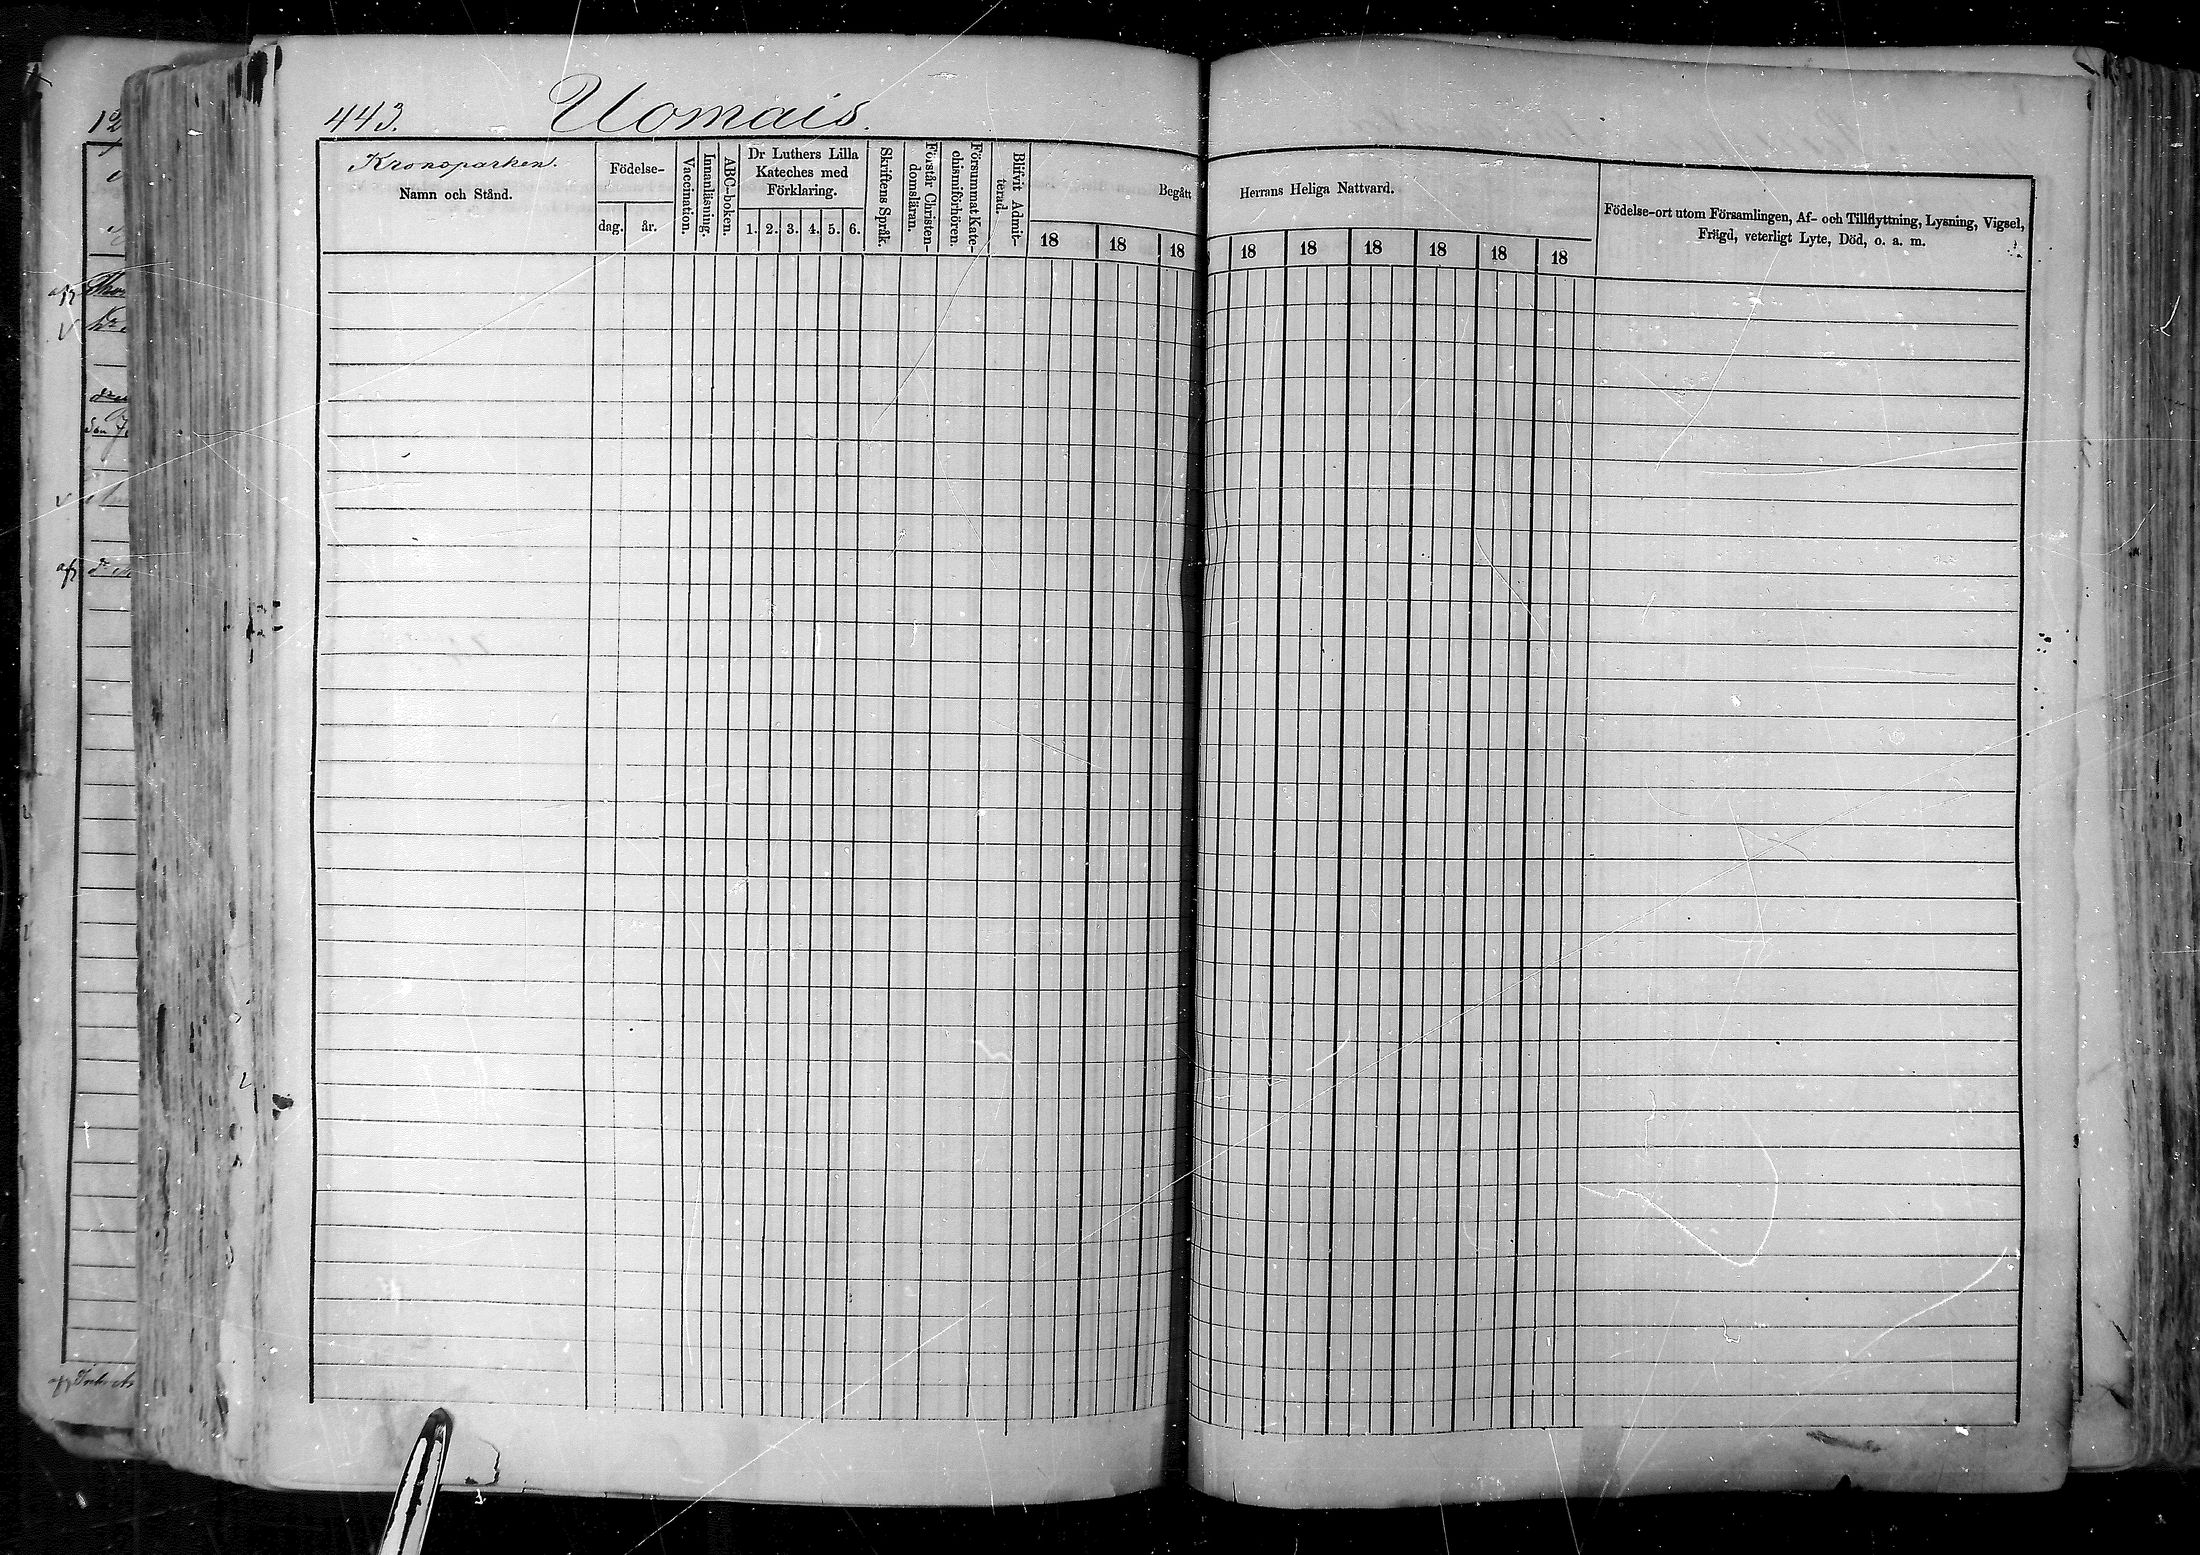 443. Uomais.
Kronoparken.
Namn och Stånd.
Födelse-
dag. år.
Vaccination.
Innanläsning.
ABC-boken.
Dr Luthers Lilla
Kateches med
Förklaring.
1. 2. 3. 4. 5. 6.
Skriftens Språk.
Förstår Christen-
domsläran.
Försummat Kate-
chismiförhören.
Blifvit Admit-
terad.
Begått Herrans Heliga Nattvard.
18 18 18 18 18 18 18 18 18
Födelse-ort utom Församlingen, Af- och Tillflyttning, Lysning, Vigsel,
Frägd, veterligt Lyte, Död, o. a. m.